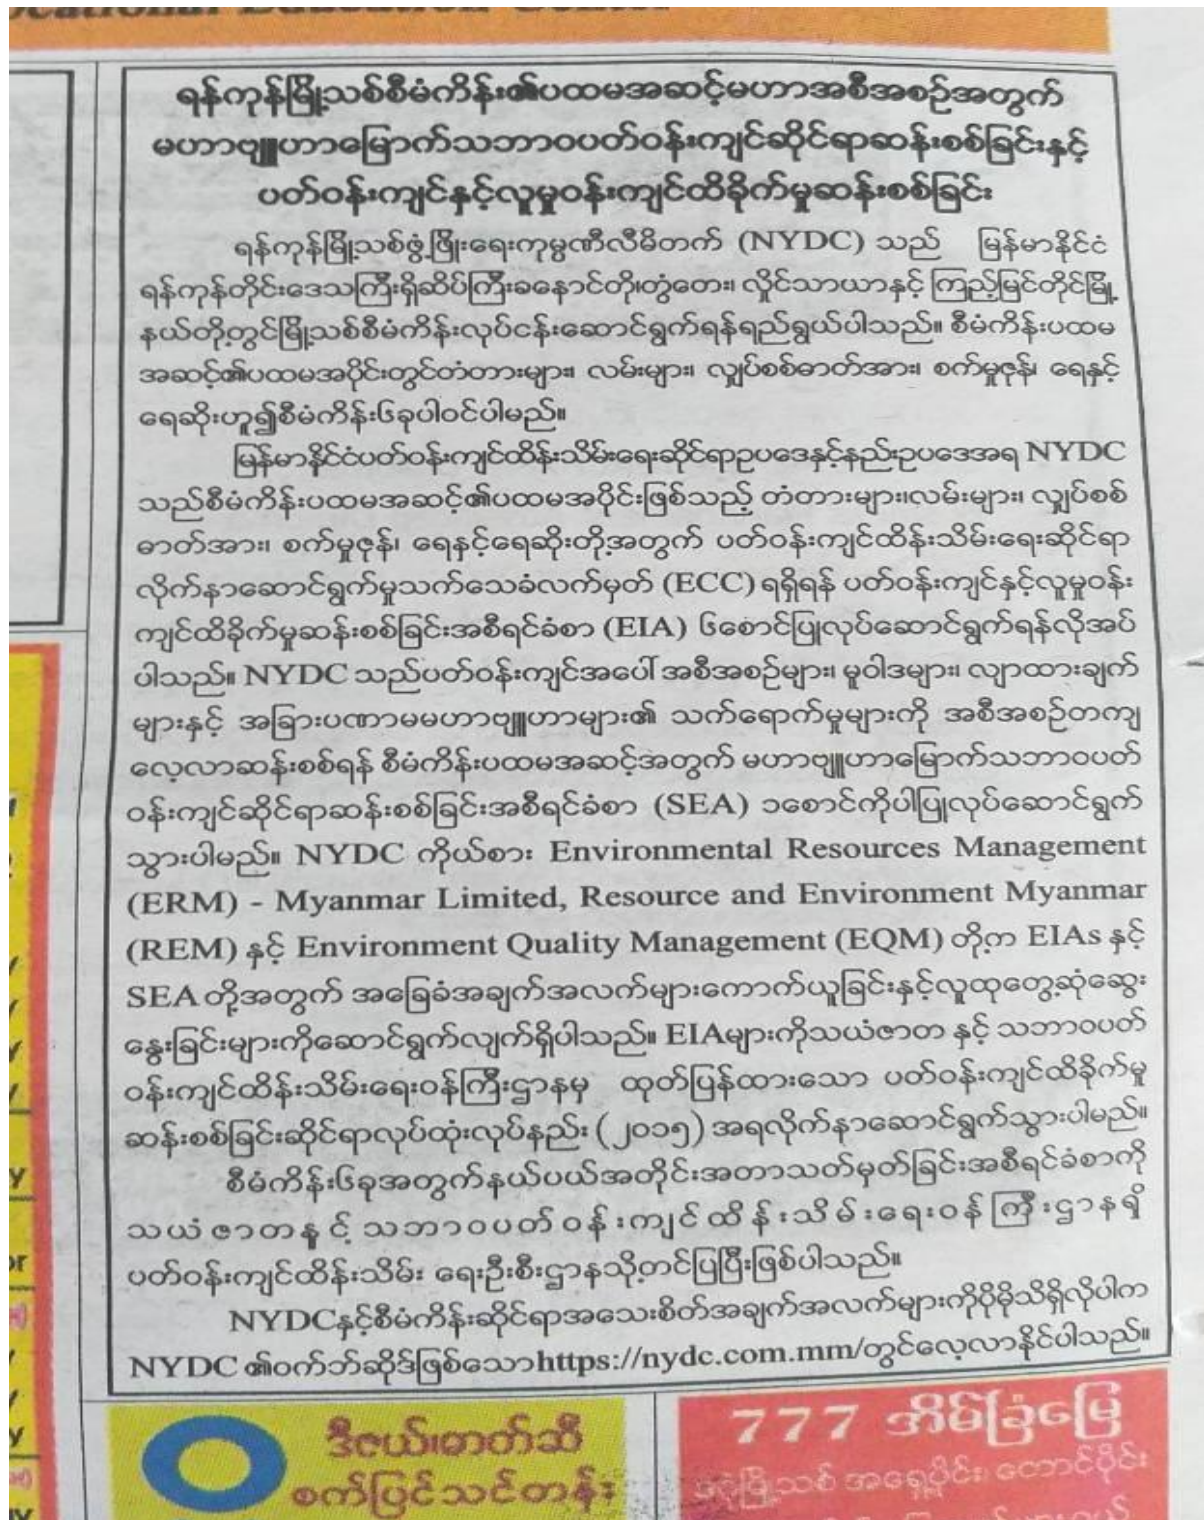 ocational Education Center
ရန်ကုန်မြို့သစ်စီမံကိန်း၏ပထမအဆင့်မဟာအစီအစဉ်အတွက်
မဟာဗျူဟာမြောက်သဘာဝပတ်ဝန်းကျင်ဆိုင်ရာဆန်းစစ်ခြင်းနှင့်
ပတ်ဝန်းကျင်နှင့်လူမှုဝန်းကျင်ထိခိုက်မှုဆန်းစစ်ခြင်း
ရန်ကုန်မြို့သစ်ဖွံ့ဖြိုးရေးကုမ္ပဏီလီမိတက် (NYDC) သည် မြန်မာနိုင်ငံ
ရန်ကုန်တိုင်းဒေသကြီးရှိဆိပ်ကြီးခနောင်တို၊တွံတေး၊ လှိုင်သာယာနှင့် ကြည့်မြင်တိုင်မြို့
နယ်တို့တွင်မြို့သစ်စီမံကိန်းလုပ်ငန်းဆောင်ရွက်ရန်ရည်ရွယ်ပါသည်။ စီမံကိန်းပထမ
အဆင့်၏ပထမအပိုင်းတွင်တံတားများ၊ လမ်းများ၊ လျှပ်စစ်ဓာတ်အား၊ စက်မှုဇုန်၊ ရေနှင့်
ရေဆိုးဟူ၍စီမံကိန်း၆ခုပါဝင်ပါမည်။
မြန်မာနိုင်ငံပတ်ဝန်းကျင်ထိန်းသိမ်းရေးဆိုင်ရာဥပဒေနှင့်နည်းဥပဒေအရ NYDC
သည်စီမံကိန်းပထမအဆင့်၏ပထမအပိုင်းဖြစ်သည့် တံတားများ၊လမ်းများ၊ လျှပ်စစ်
ဓာတ်အား၊ စက်မှုဇုန်၊ ရေနှင့်ရေဆိုးတို့အတွက် ပတ်ဝန်းကျင်ထိန်းသိမ်းရေးဆိုင်ရာ
လိုက်နာဆောင်ရွက်မှုသက်သေခံလက်မှတ် (ECC) ရရှိရန် ပတ်ဝန်းကျင်နှင့်လူမှုဝန်း
ကျင်ထိခိုက်မှုဆန်းစစ်ခြင်းအစီရင်ခံစာ (EIA) ၆စောင်ပြုလုပ်ဆောင်ရွက်ရန်လိုအပ်
ပါသည်။ NYDC သည်ပတ်ဝန်းကျင်အပေါ် အစီအစဉ်များ၊ မူဝါဒများ၊ လျာထားချက်
များနှင့် အခြားပဏာမမဟာဗျူဟာများ၏ သက်ရောက်မှုများကို အစီအစဉ်တကျ
လေ့လာဆန်းစစ်ရန် စီမံကိန်းပထမအဆင့်အတွက် မဟာဗျူဟာမြောက်သဘာဝပတ်
ဝန်းကျင်ဆိုင်ရာဆန်းစစ်ခြင်းအစီရင်ခံစာ (SEA) ၁စောင်ကိုပါပြုလုပ်ဆောင်ရွက်
သွားပါမည်။ NYDC ကိုယ်စား Environmental Resources Management
(ERM) - Myanmar Limited, Resource and Environment Myanmar
(REM) နှင့် Environment Quality Management (EQM) တို့က EIAs နှင့်
SEA တို့အတွက် အခြေခံအချက်အလက်များကောက်ယူခြင်းနှင့်လူထုတွေ့ဆုံဆွေး
နွေးခြင်းများကိုဆောင်ရွက်လျက်ရှိပါသည်။ EIAများကိုသယံဇာတ နှင့် သဘာဝပတ်
ဝန်းကျင်ထိန်းသိမ်းရေးဝန်ကြီးဌာနမှ ထုတ်ပြန်ထားသော ပတ်ဝန်းကျင်ထိခိုက်မှု
ဆန်းစစ်ခြင်းဆိုင်ရာလုပ်ထုံးလုပ်နည်း (၂၀၁၅) အရလိုက်နာဆောင်ရွက်သွားပါမည်။
စီမံကိန်း၆ခုအတွက်နယ်ပယ်အတိုင်းအတာသတ်မှတ်ခြင်းအစီရင်ခံစာကို
သယံဇာတနှင့် သဘာဝပတ်ဝန်းကျင်ထိန်းသိမ်းရေးဝန်ကြီးဌာနရှိ
ပတ်ဝန်းကျင်ထိန်းသိမ်း ရေးဦးစီးဌာနသို့တင်ပြပြီးဖြစ်ပါသည်။
NYDCနှင့်စီမံကိန်းဆိုင်ရာအသေးစိတ်အချက်အလက်များကိုပိုမိုသိရှိလိုပါက
NYDC ၏ဝက်ဘ်ဆိုဒ်ဖြစ်သောhttps://nydc.com.mm/တွင်လေ့လာနိုင်ပါသည်။
ဒီဇယ်၊ဓာတ်ဆီ
စက်ပြင်သင်တန်း
777 အိမ်ခြံမြေ
မြို့သစ် အရှေ့ပိုင်း၊ တောင်ပိုင်း